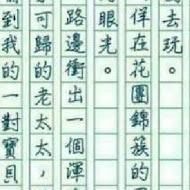 去玩
徉在花團錦簇的
眼光。
路邊衝出一個渾
可歸的老太太，
到我的一對寶貝